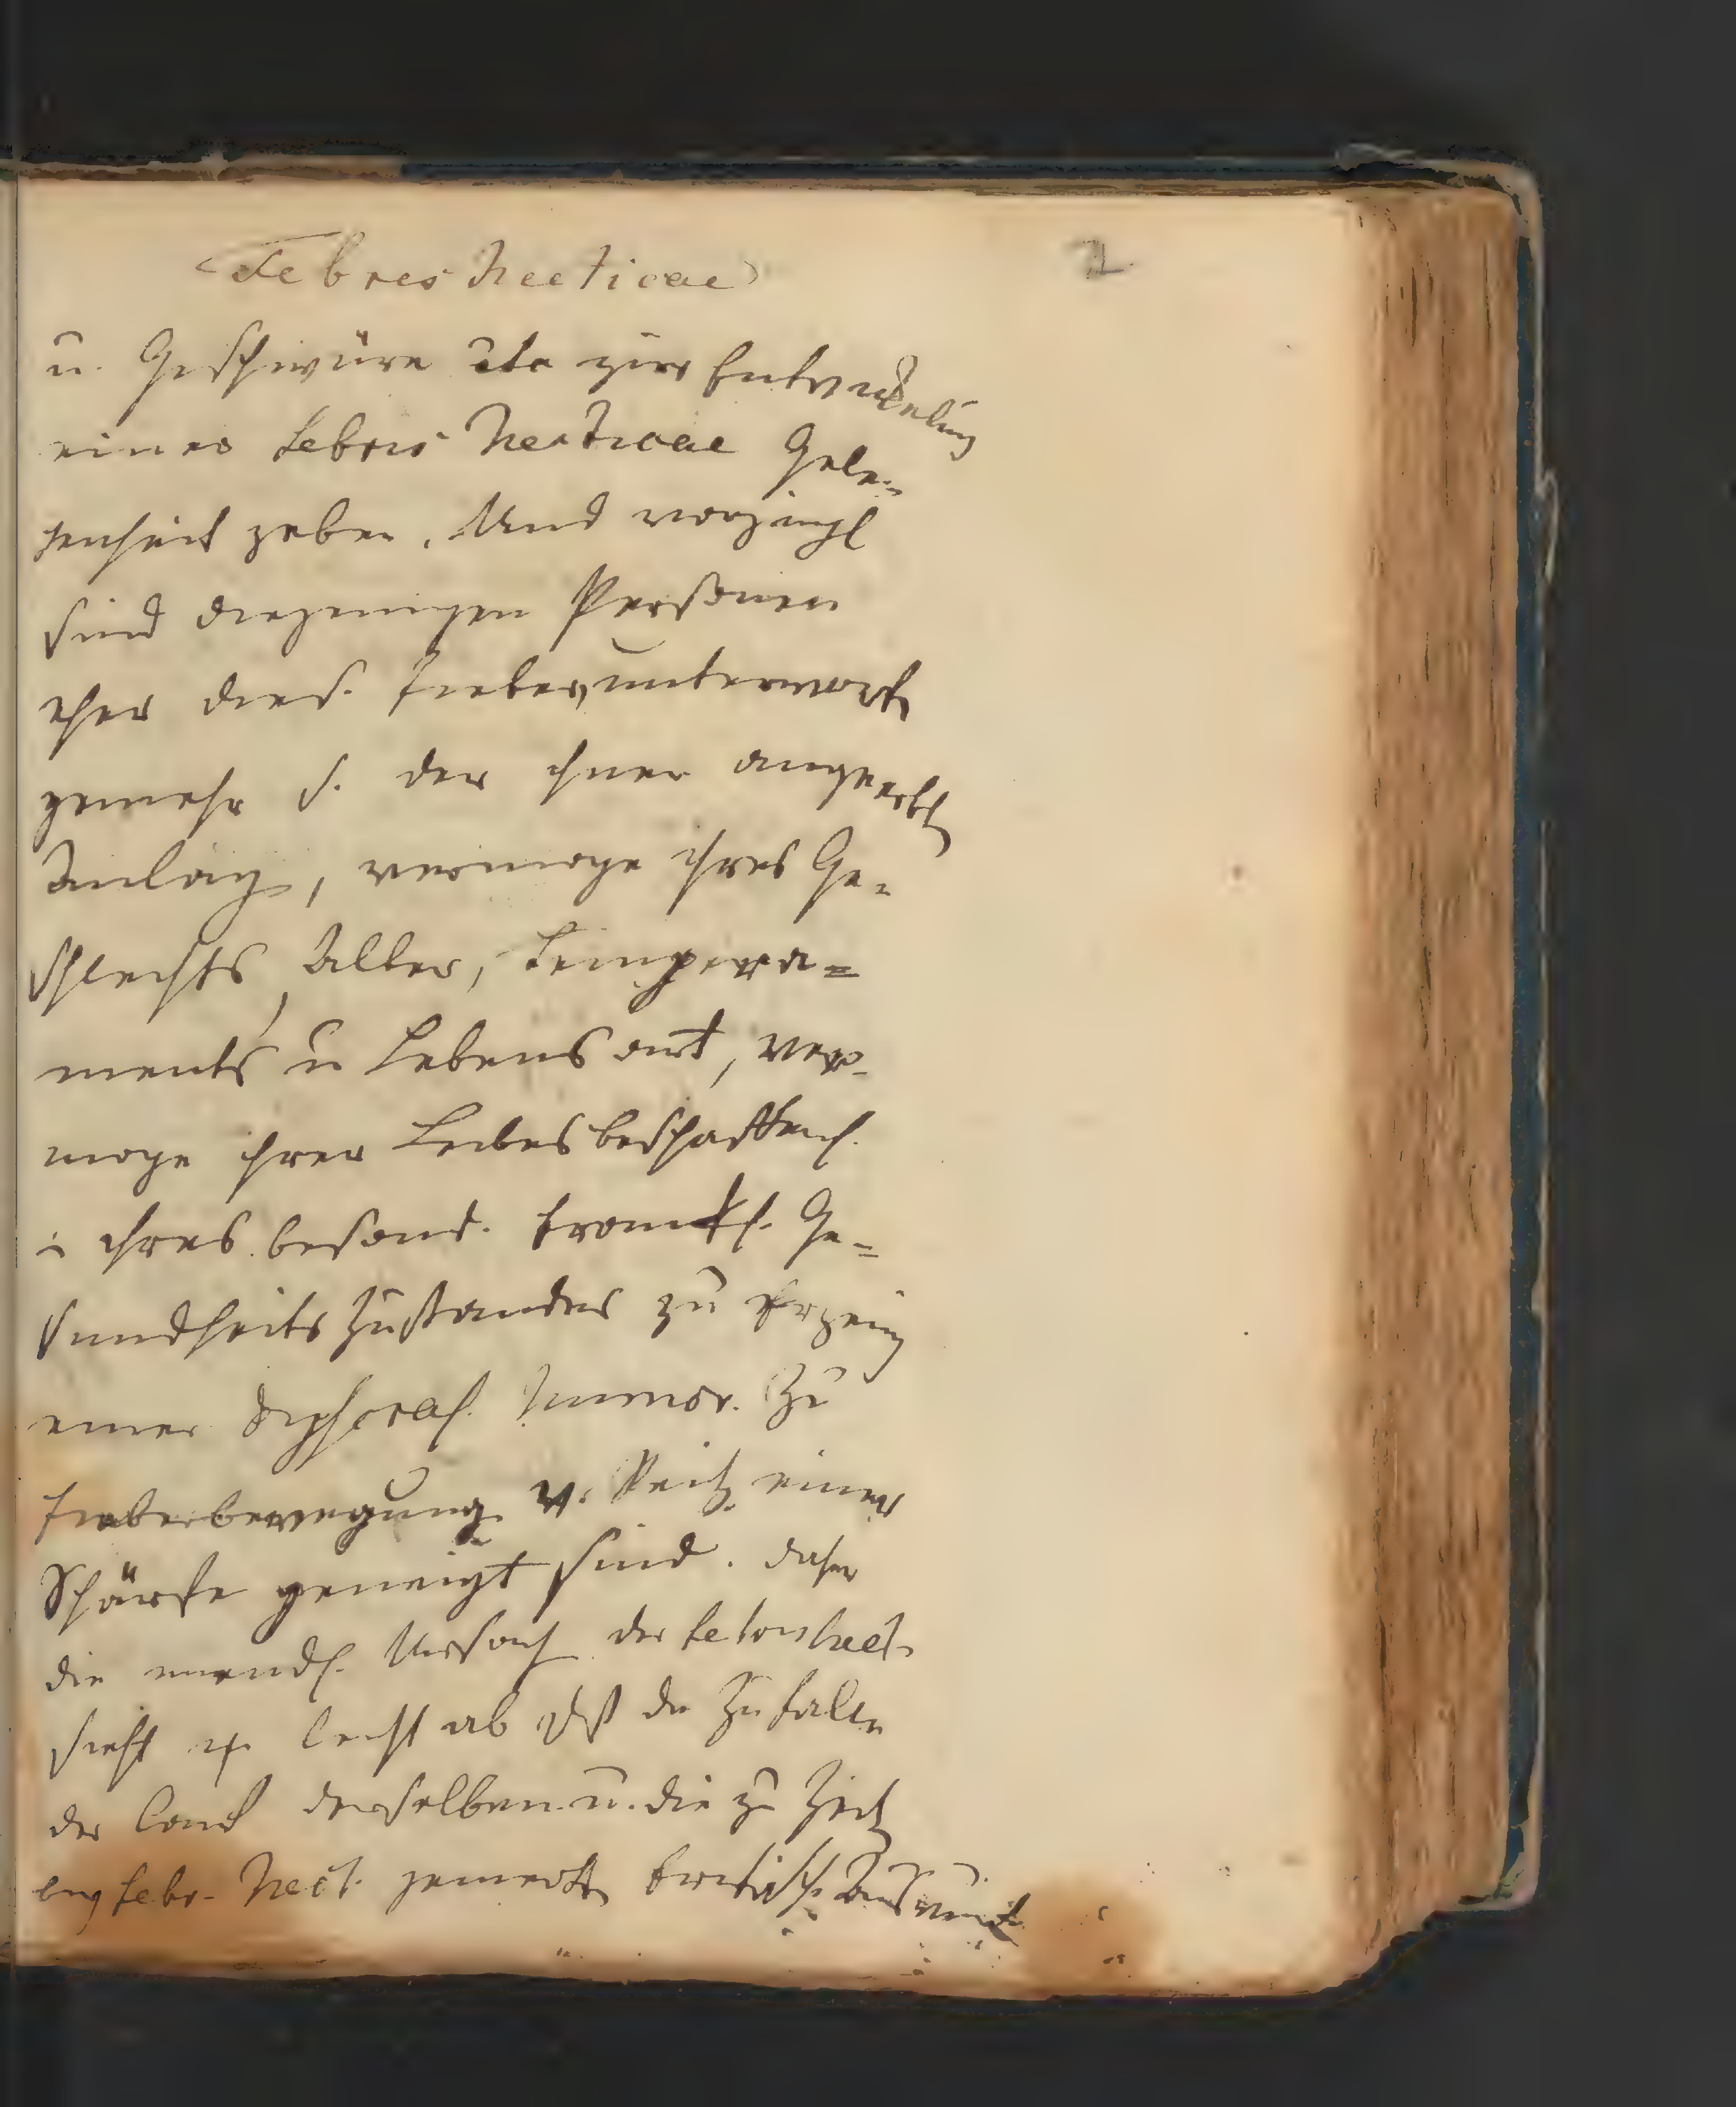 Febres hecticae
2
u. Geschwüre etc zur Entwickelung
einer Febris Hecticae Gele-
genheit geben. Und vorzügl
sind diejenigen Personen
eher dies. Fieber unterworf
jemehr s. der ihnen angeerbt
Anlage, vermöge ihres Ge-
schlechts, Alter, Tempera-
ments u Lebensart, ver-
möge ihrer Leibesbeschaffenh.
u ihres besond. krankh. Ge-
sundheitszustandes zu Erzeug
einer Dyscras. humor. zu
Fieberbewegung u. Reitz einer
Schärfe geneigt sind. daher
die Ursach der Febris hect.
sieht leicht ab die Zufälle
der derselben u. die zu Zeit
Febr. Hect. gemerkt kritisch